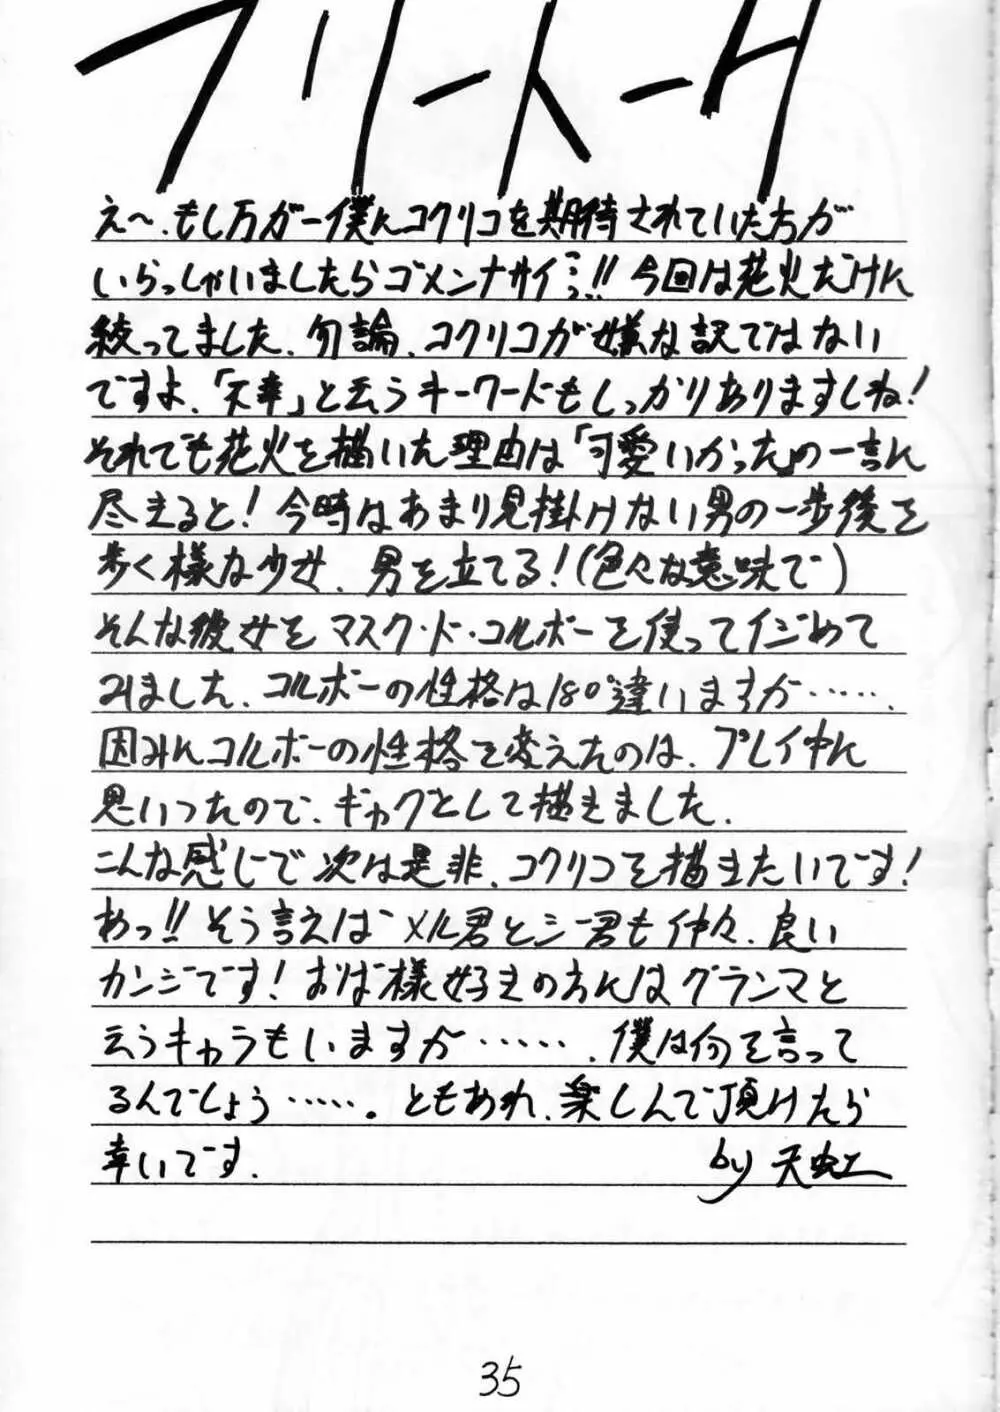 フリートーク
え〜、もし万が一僕にコクリコを期待されていた方が
いらっしゃいましたらゴメンナサイ…!! 今回は花火だけに
絞ってました。勿論、コクリコが嫌な訳ではない
ですよ、「不幸」と云うキーワードもしっかりありますしね!
それでも花火を描いた理由は「可愛いかった」の一言に
尽えると! 今時はあまり見掛けない男の一歩後を
歩く様な少女、男を立てる!(色々な意味で)
そんな彼女をマスク・ド・コルボーを使ってイジめて
みました。コルボーの性格は180°違いますが……。
因みにコルボーの性格を変えたのは、プレイ中に
思いついたので、ギャグとして描きました。
こんな感じで次は是非、コクリコを描きたいです!
あっ!! そう言えば メル君とシー君も仲々、良い
カンジです! おば様好きの方にはグランマと
云うキャラもいますが……。僕は何を言って
るんでしょう……。ともあれ、楽しんで頂けたら
幸いです。 by 天虹
35